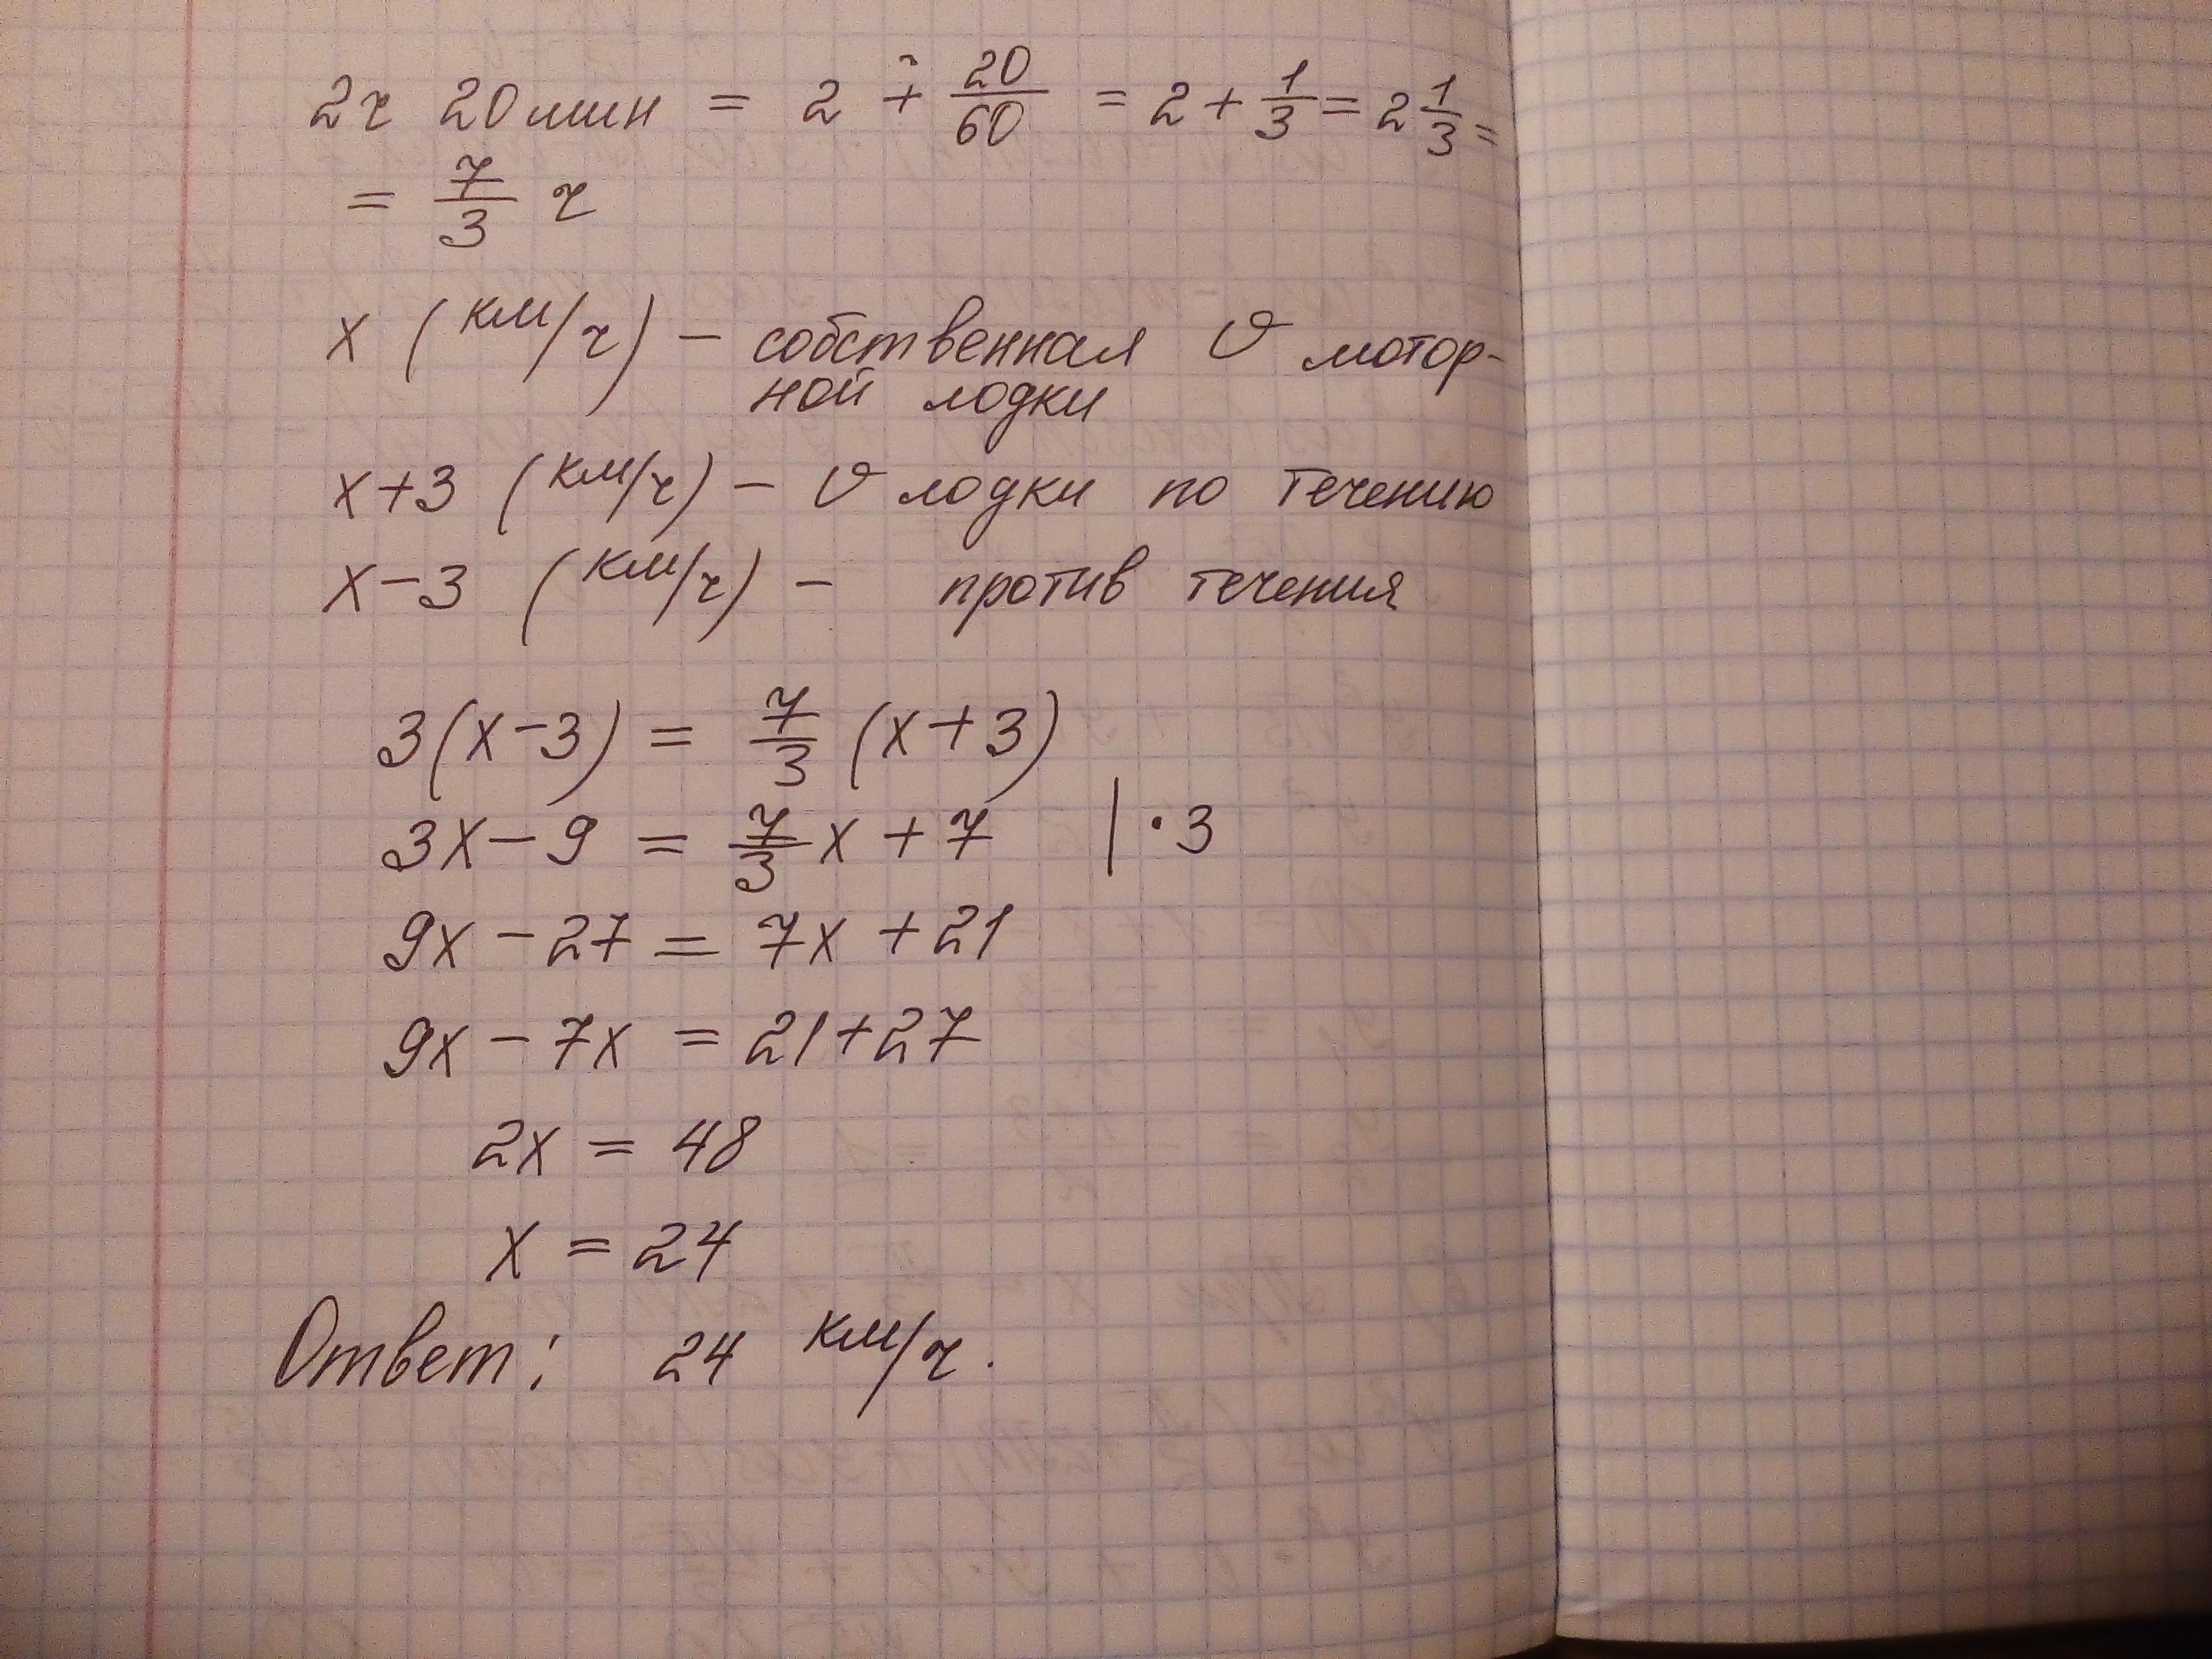 2ч 20мин = 2 + 20/60 = 2 + 1/3 = 2 1/3 =
= 7/3 ч
x (км/ч) – собственная v мотор-
ной лодки
x+3 (км/ч) – v лодки по течению
x–3 (км/ч) – против течения
3(x–3) = 7/3 (x+3)
3x–9 = 7/3 x + 7 | · 3
9x – 27 = 7x + 21
9x – 7x = 21+27
2x = 48
x = 24
Ответ: 24 км/ч.